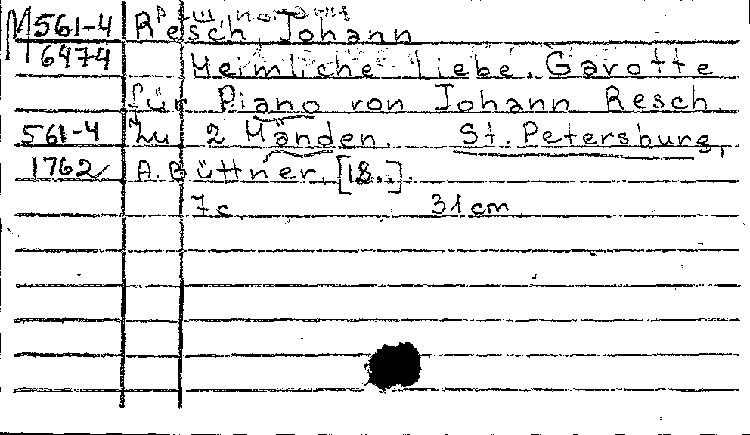 M 561-4 Resch, Johann
6474 Heimliche Liebe. Gavotte
für Piano von Johann Resch.
561-4 Zu 2 Händen. St. Petersburg,
1762 A. Büttner, [18..].
7 c. 31 cm